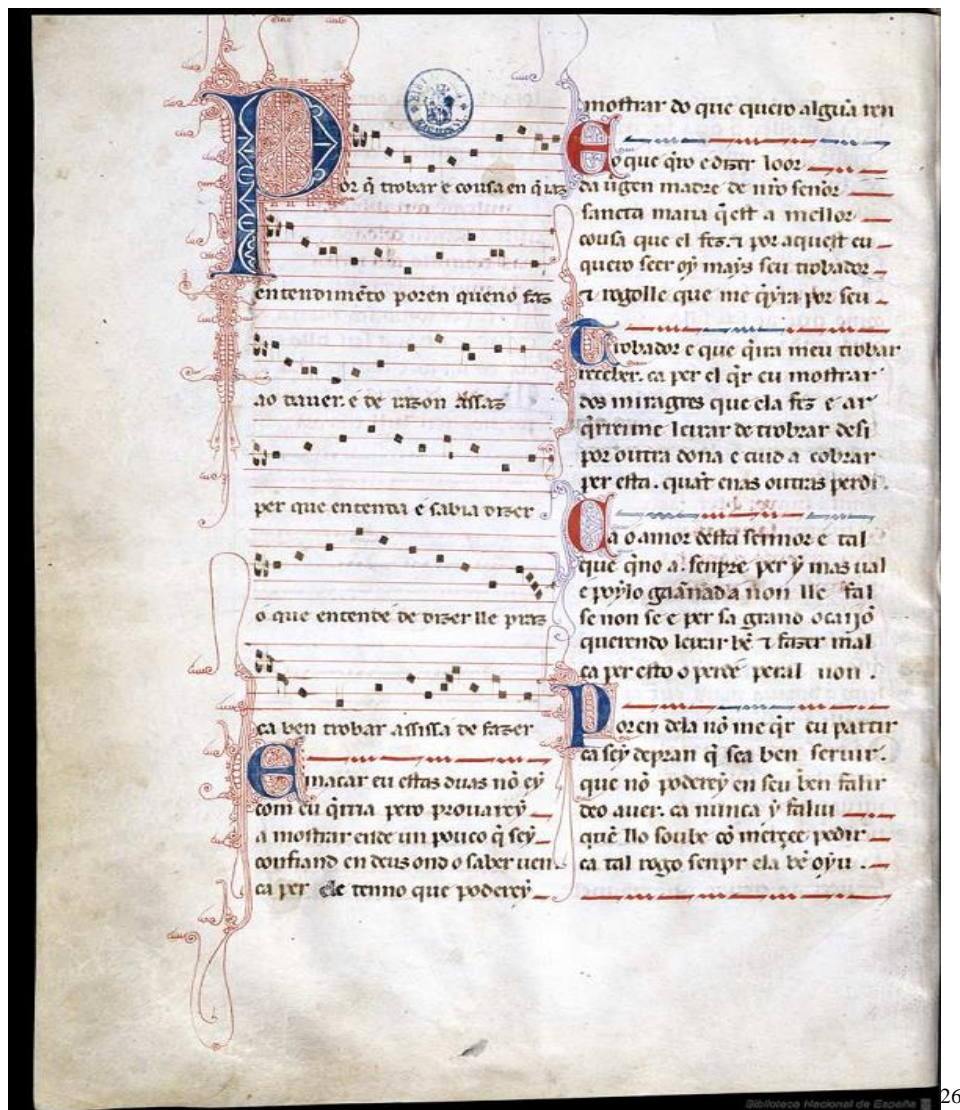 Por q̄ trobar e cousa en q̄ iaz
entendimẽto poren queno faz
ao dauer. e de razon assaz
per que entenda e sabia dizer
o que entende de dizer lle praz
ca ben trobar assi s a de fazer
E macar eu estas duas nõ ey
com eu q̄rria pero prouarey
a mostrar ende un pouco q̄ sey
confiand en deus ond o saber uen
ca per ele tenno que poderey
mostrar do que quero algũa ren
E o que q̄ro e dizer loor
da uigen madre de nr̃o senor
sancta maria q̄ est a mellor
cousa que el fez. ⁊ por aquest eu
quero seer oy mays seu trobador
⁊ rogolle que me q̄yra por seu
Trobador e que q̄ira meu trobar
receber. ca per el q̄r eu mostrar
dos miragres que ela fez e ar
q̄rreime leixar de trobrar desi
por outra dona e cuid a cobrar
per esta. quãt enas outras perdi.
Ca o amor desta sennor e tal
que q̄no a. senpre per y mas ual
e poylo gaãnada non lle fal
se non se e per sa grano ocaijõ
querendo leixar bẽ ⁊ fazer mal
ca per esto o perde per al non.
Poren dela nõ me q̄r eu partir
ca sey de pran q̄ sea ben seruir.
que nõ poderey en seu ben falir
deo auer. ca nunca y faliu
quẽ llo soube cõ merçee pedir
ca tal rogo senpr ela bẽ oyu.
Biblioteca Nacional de España
26